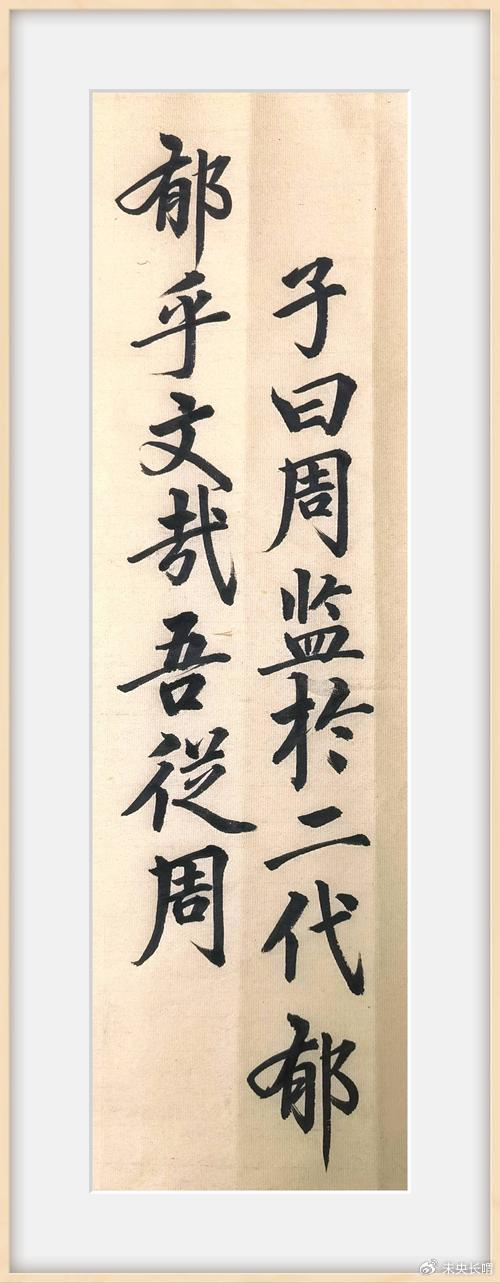 子曰周监於二代郁
郁乎文哉吾従周
未央长喟